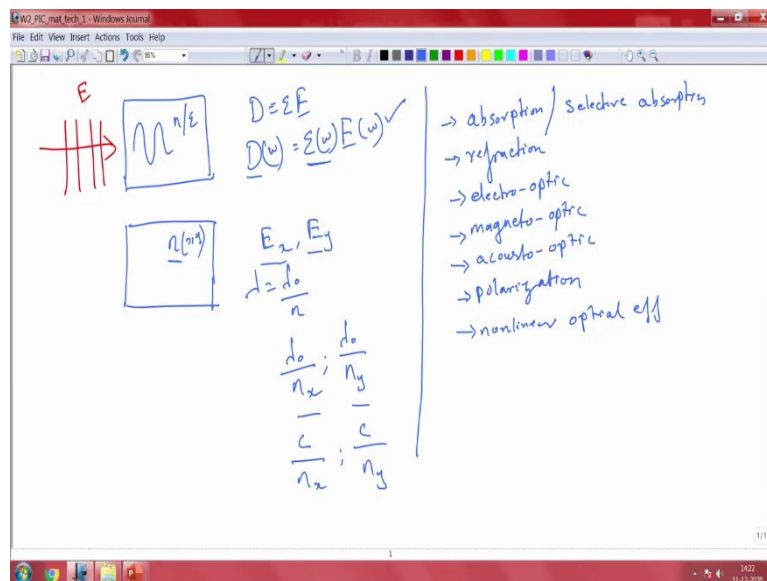 W2_PIC_mat_tech_1 - Windows Journal
File Edit View Insert Actions Tools Help
95%
B I
E
n/ε
D = εE
D(ω) = ε(ω) E(ω) ✓
n(x,y)
Ex, Ey
λ = λ0/n
λ0/nx ; λ0/ny
c/nx ; c/ny
→ absorption / Selective absorption
→ refraction
→ electro-optic
→ magneto-optic
→ acousto-optic
→ polarization
→ nonlinear optical eff
1/1
1
14:22
11-12-2020